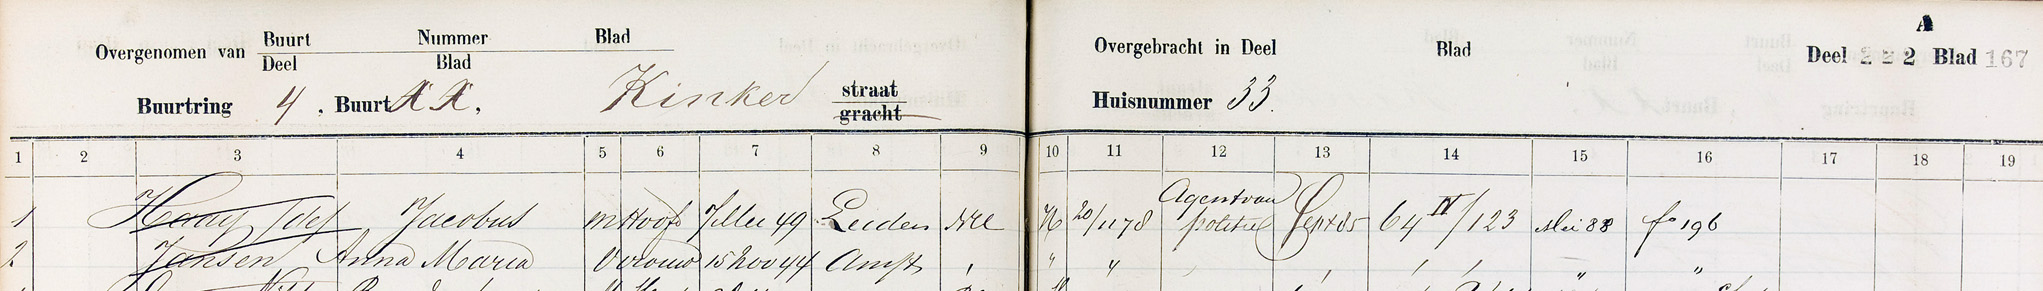 Overgenomen van Buurt Nummer Blad
Deel Blad
Buurtring 4, Buurt XX, Kinker straat
gracht
Overgebracht in Deel Blad
A
Deel 2 = 2 Blad 167
Huisnummer 33.
1 2 3 4 5 6 7 8 9 10 11 12 13 14 15 16 17 18 19
1 Jacobus m Hoofd 49 Leiden 20/11 78 Agent van politie Sept 85 64 IV/123 Mei 88 fo 196
2 Jansen Anna Maria v vrouw 15 Nov 44 Amst " " " "